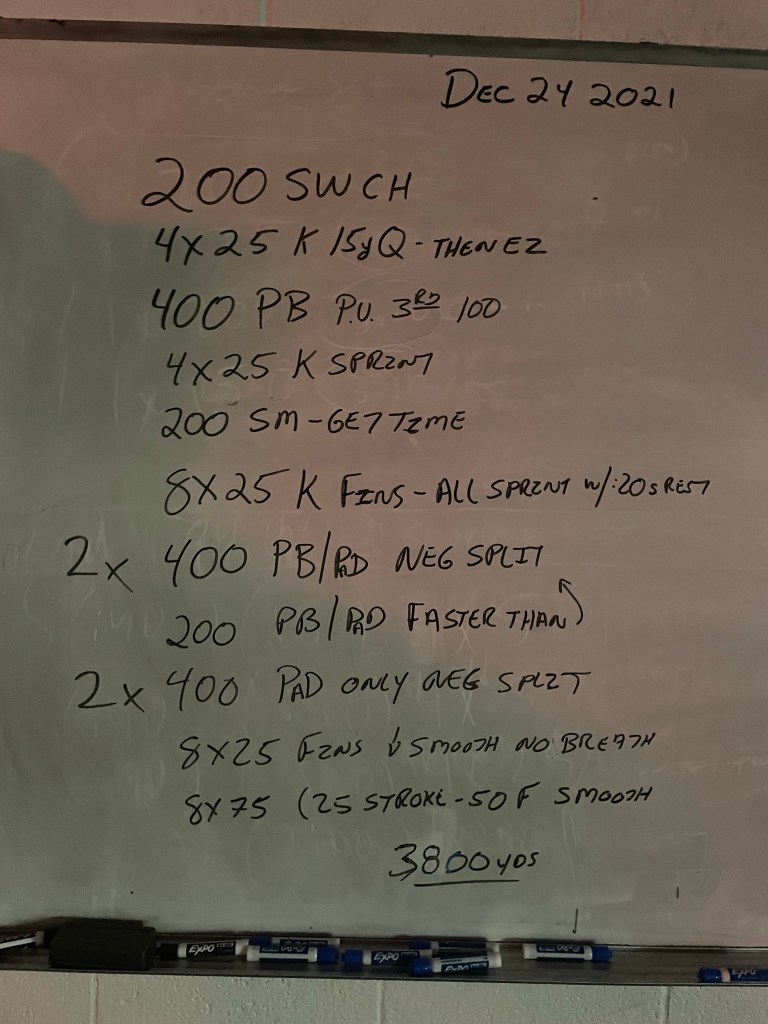 DEC 24 2021
200 SWCH
4X25 K 15yQ - THEN EZ
400 PB P.U. 3RD 100
4X25 K SPRINT
200 SM - GET TIME
8X25 K FINS - ALL SPRINT W/:20s REST
2x 400 PB/PAD NEG SPLIT
200 PB/PAD FASTER THAN
2x 400 PAD ONLY NEG SPLIT
8X25 FINS ↓ SMOOTH NO BREATH
8X75 (25 STROKE - 50 F SMOOTH
3800 yds
EXPO
EXPO
EXPO
EXPO